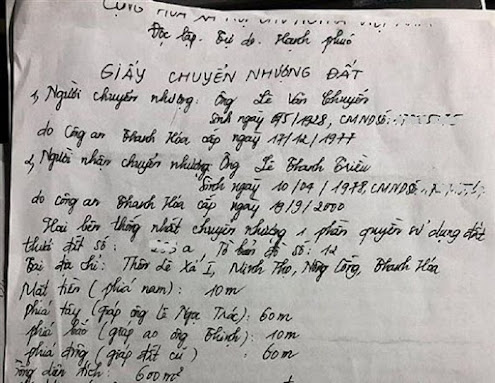 CỘNG HÒA XÃ HỘI CHỦ NGHĨA VIỆT NAM
Độc lập. Tự do. Hạnh phúc
GIẤY CHUYỂN NHƯỢNG ĐẤT
1, Người chuyển nhượng: Ông Lê Văn Chuyến
Sinh ngày /5/1928, CMND Số:
do Công an Thanh Hóa cấp ngày 17/12/1977
2, Người nhận chuyển nhượng Ông Lê Thanh Triều
Sinh ngày 10/04/1978, CMND Số
do công an Thanh Hóa cấp ngày 19/9/2000
Hai bên thống nhất chuyển nhượng 1 phần quyền sử dụng đất
thửa đất số: a Tờ bản đồ số: 12
Tại địa chỉ: Thôn Lê Xá I, Minh Thọ, Nông Cống, Thanh Hóa
Mặt tiền (phía nam): 10m
Phía tây (giáp ông Lê Ngọc Trác): 60m
phía bắc (giáp ao ông Thỉnh): 10m
phía đông (giáp đất cũ): 60m
Tổng diện tích: 600m²